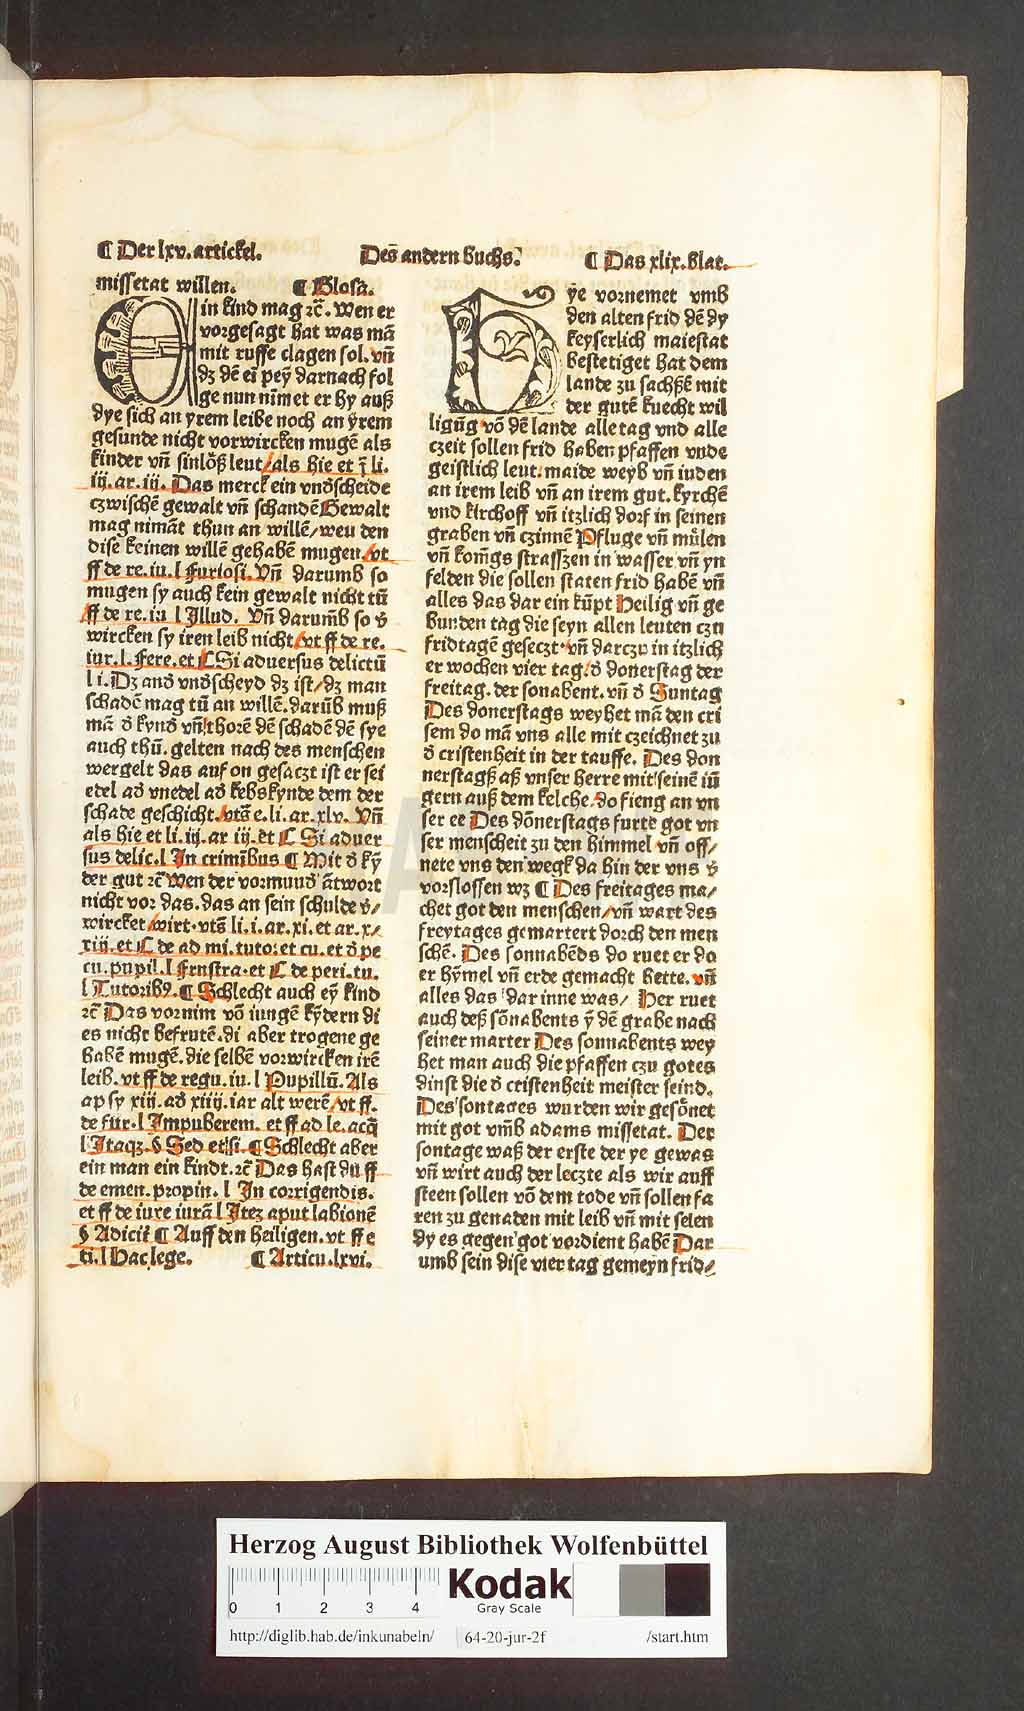 ¶ Der lxv. artickel. Des̄ andern buchs. ¶ Das xlix. blat.
missetat willen. ¶ Glosa.
Ein kind mag ꝛc̄. Wen er
vorgesagt hat was mā
mit ruffe clagen sol. vn̄
dz dē ei pey darnach fol
ge nun nimet er hy auß
dye sich an yrem leibe noch an yrem
gesunde nicht vorwircken mugē als
kinder vn̄ sinlöß leut/als hie et j̄ li.
iij. ar. iij. Das merck ein vnd̄scheide
czwischē gewalt vn̄ schandē Gewalt
mag nimāt thun an willē/wen den
dise keinen willē gehabē mugen/vt
ff de re. iu. l Furiosi. Vn̄ darumb so
mugen sy auch kein gewalt nicht tū
/ff de re. iu l Illud. Vn̄ darum̄b so v̄
wircken sy iren leib nicht/vt ff de re.
iur. l. Fere. et C Si aduersus delictū
l i. Dz and̄ vnd̄scheyd dz ist/dz man
schadē mag tū an willē. darūb muß
mā d̄ kynd̄ vn̄ thorē dē schadē dē sye
auch thū. gelten nach des menschen
wergelt das auf on gesaczt ist er sei
edel ad̄ vnedel ad̄ kebskynde dem der
schade geschicht/vts̄ e. li. ar. xlv. Vn̄
als hie et li. iij. ar iij. et C Si aduer
sus delic. l In crimībus ¶ Mit d̄ ky̆
der gut ꝛc̄ Wen der vormund̄ ātwort
nicht vor das. das an sein schulde v̄/
wircket/wirt. vts̄ li. i. ar. xi. et ar. x/
xiij. et C de ad mi. tuto: et cu. et d̄ pe
cu. pupil. l Frustra. et C de peri. tu.
l Tutorib9. ¶ Schlecht auch ey̆ kind
ꝛc̄ Das vornim vō iungē ky̆dern di
es nicht befrutē. di aber trogene ge
habē mugē. die selbē vorwircken irē
leib. vt ff de regu. iu. l Pupillū. Als
ap sy xiij. ad̄ xiiij. iar alt werē/vt ff.
de fur. l Impuberem. et ff ad le. acq̄
l Itaqz. § Sed et si. ¶ Schlecht aber
ein man ein kindt. ꝛc̄ Das hast du ff
de emen. propin. l In corrigendis.
et ff de iure iurā l Itez aput labionē
§ Adicit̄ ¶ Auff den heiligen. vt ff e
ti. l Hac lege. ¶ Articu. lxvi.
Dye vornemet vmb
den alten frid dē dy
keyserlich maiestat
bestetiget hat dem
lande zu sachßē mit
der gutē kuecht wil
ligūg vō dē lande alle tag vnd alle
czeit sollen frid haben pfaffen vnde
geistlich leut. maide weyb vn̄ iuden
an irem leib vn̄ an irem gut. kyrchē
vnd kirchoff vn̄ itzlich dorf in seinen
graben vn̄ czinnē Pfluge vn̄ mülen
vn̄ kom̄gs strasszen in wasser vn̄ yn
felden die sollen staten frid habē vn̄
alles das dar ein kūpt Heilig vn̄ ge
bunden tag die seyn allen leuten czu
fridtagē geseczt. vn̄ darczu in itzlich
er wochen vier tag/d̄ donerstag der
freitag. der sonabent. vn̄ d̄ Suntag
Des donerstags weyhet mā den cri
sem do mā vns alle mit czeichnet zu
d̄ cristenheit in der tauffe. Des don
nerstagß aß vnser herre mit seinē iū
gern auß dem kelche/do fieng an vn
ser ee Des dōnerstags furte got vn
ser menscheit zu den himmel vn̄ off/
nete vns den wegk da hin der vns v̄
vorslossen wz ¶ Des freitages ma/
chet got den menschen/vn̄ wart des
freytages gemartert dorch den men
schē. Des sonnabēds do ruet er do
er hy̆mel vn̄ erde gemacht hette. vn̄
alles das dar inne was/ Her ruet
auch deß sōnabents y̆ dē grabe nach
seiner marter Des sonnabents wey
het man auch die pfaffen czu gotes
dinst die d̄ cristenheit meister seind.
Des sontages wurden wir gesōnet
mit got vm̄b adams missetat. Der
sontage waß der erste der ye gewas
vn̄ wirt auch der leczte als wir auff
steen sollen vō dem tode vn̄ sollen fa
ren zu genaden mit leib vn̄ mit selen
dy es gegen got vordient habē Dar
umb sein dise vier tag gemeyn frid/
HAB
Herzog August Bibliothek Wolfenbüttel
0 1 2 3 4
Kodak
Gray Scale
http://diglib.hab.de/inkunabeln/ 64-20-jur-2f /start.htm